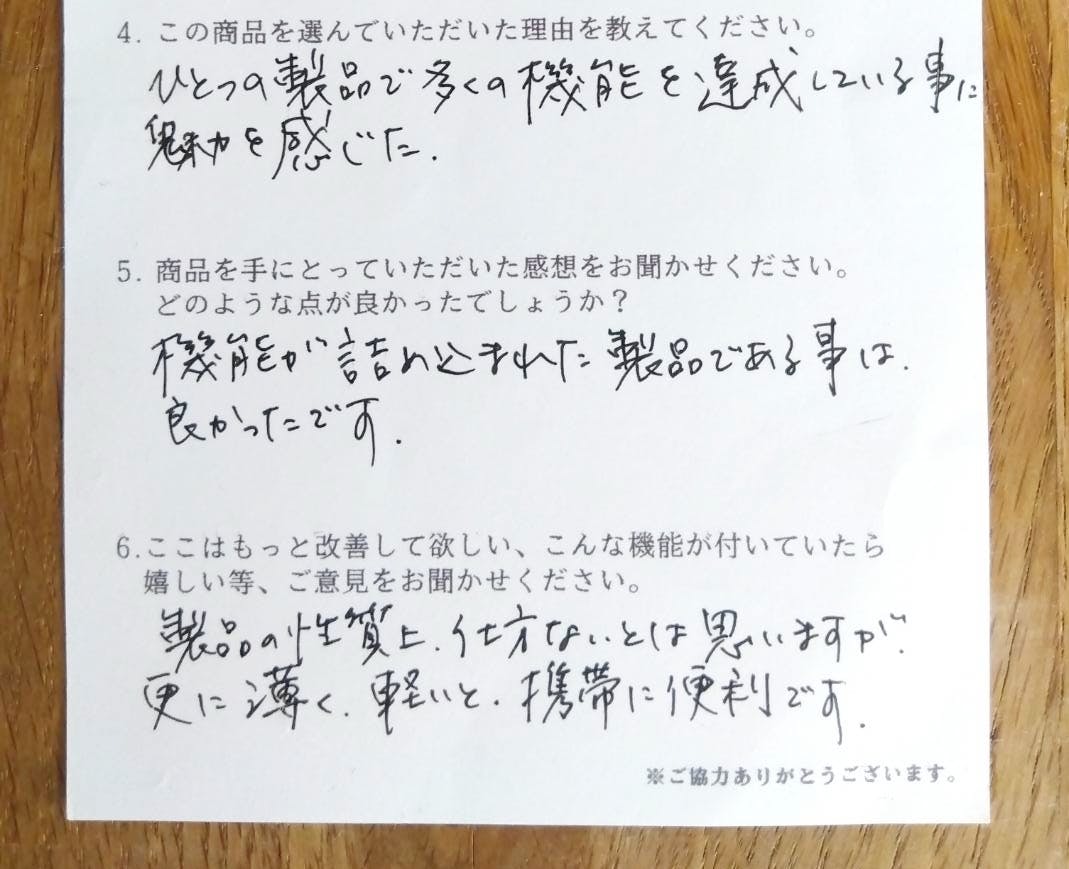 4. この商品を選んでいただいた理由を教えてください。
ひとつの製品で多くの機能を達成している事に
魅力を感じた.
5. 商品を手にとっていただいた感想をお聞かせください。
どのような点が良かったでしょうか？
機能が詰め込まれた製品である事は.
良かったです.
6.ここはもっと改善して欲しい、こんな機能が付いていたら
嬉しい等、ご意見をお聞かせください。
製品の性質上.仕方ないとは思いますが.
更に薄く.軽いと.携帯に便利です.
※ご協力ありがとうございます。